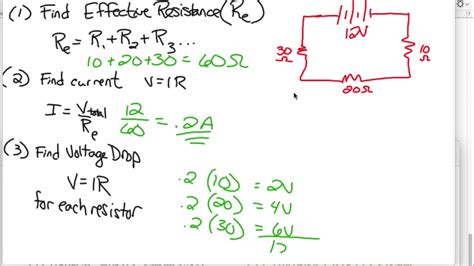 (1) Find Effective Resistance (Re)
Re = R1 + R2 + R3 ...
10 + 20 + 30 = 60Ω
(2) Find current V=IR
I = Vtotal/Re 12/60 = .2A
(3) Find Voltage Drop
V=IR
for each resistor
.2 (10) = 2V
.2 (20) = 4V
.2 (30) = 6V
12
12V
30Ω
10Ω
20Ω